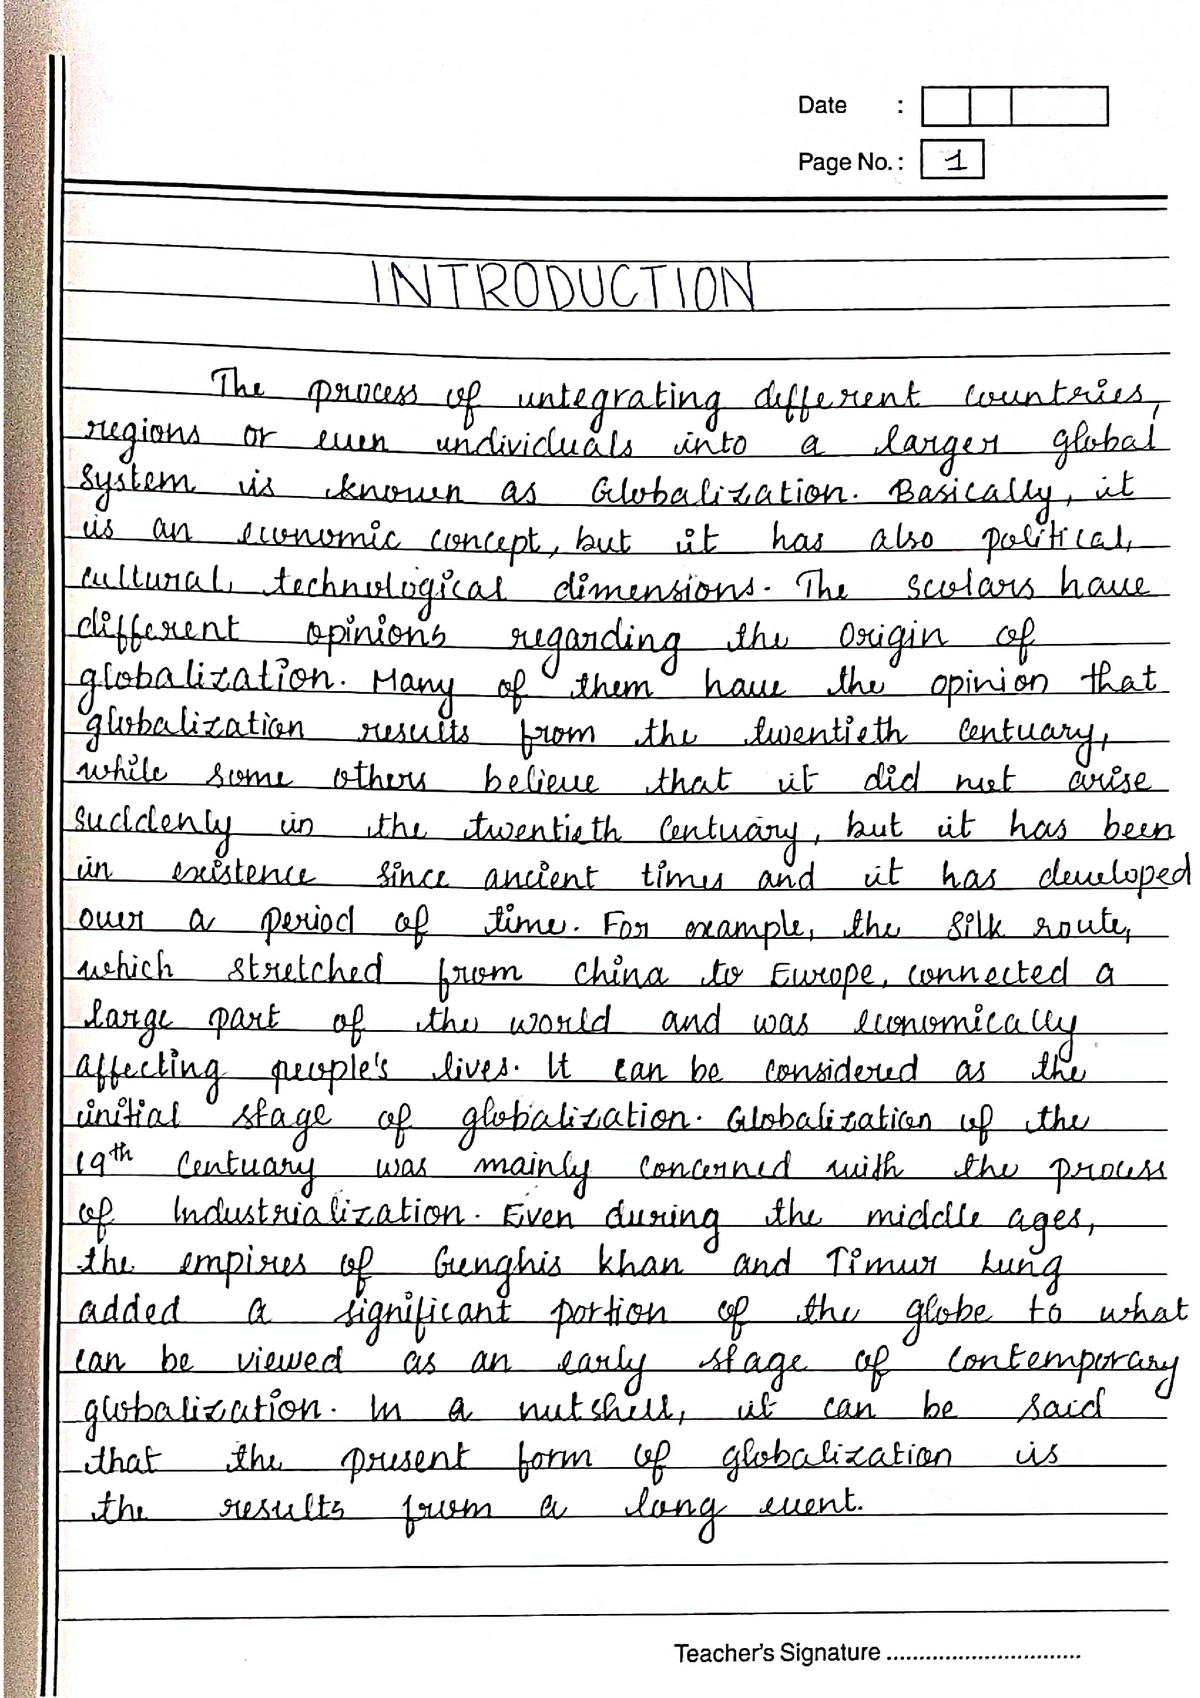 Date :
Page No. : 1
INTRODUCTION
The process of integrating different countries,
regions or even individuals into a larger global
system is known as Globalization. Basically, it
is an economic concept, but it has also political,
cultural, technological dimensions. The scolars have
different opinions regarding the origin of
globalization. Many of them have the opinion that
globalization results from the twentieth centuary,
while some others believe that it did not arise
suddenly in the twentieth centuary, but it has been
in existence since ancient times and it has developed
over a period of time. For example, the Silk route,
which stretched from China to Europe, connected a
large part of the world and was economically
affecting people's lives. It can be considered as the
initial stage of globalization. Globalization of the
19th centuary was mainly concerned with the process
of Industrialization. Even during the middle ages,
the empires of Genghis khan and Timur Lung
added a significant portion of the globe to what
can be viewed as an early stage of contemporary
globalization. In a nutshell, it can be said
that the present form of globalization is
the results from a long event.
Teacher's Signature ..............................